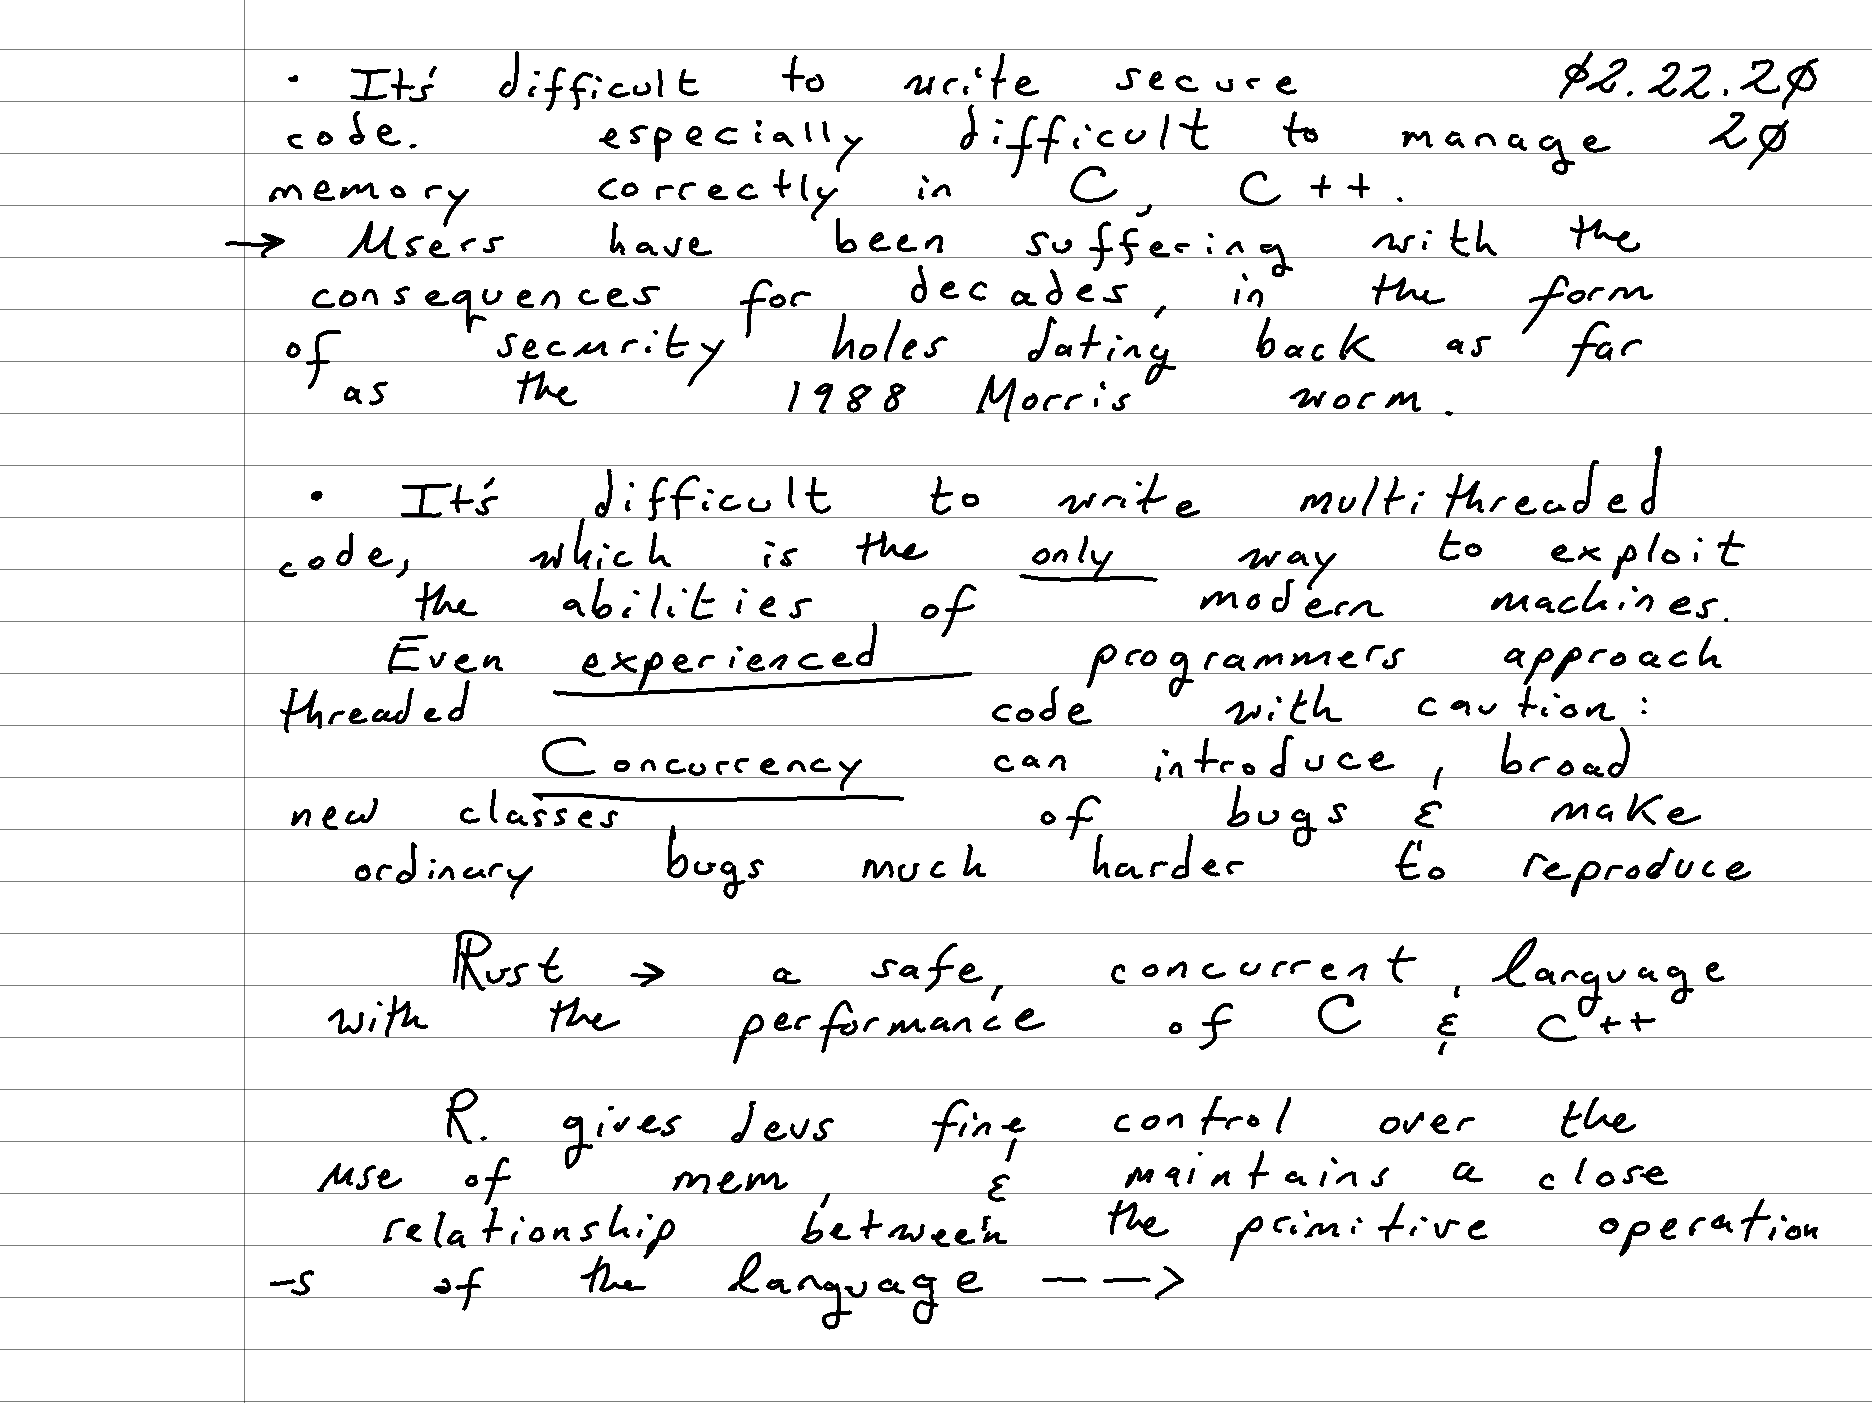 · It's difficult to write secure 02.22.20
code. especially difficult to manage 20
memory correctly in C, C++.
→ Users have been suffering with the
consequences for decades, in the form
of security holes dating back as far
as the 1988 Morris worm.
· It's difficult to write multithreaded
code, which is the only way to exploit
the abilities of modern machines.
Even experienced programmers approach
threaded code with caution:
Concurrency can introduce, broad
new classes of bugs & make
ordinary bugs much harder to reproduce
Rust → a safe, concurrent, language
with the performance of C & C++
R. gives devs fine, control over the
use of mem, & maintains a close
relationship between the primitive operation
-s of the language --->